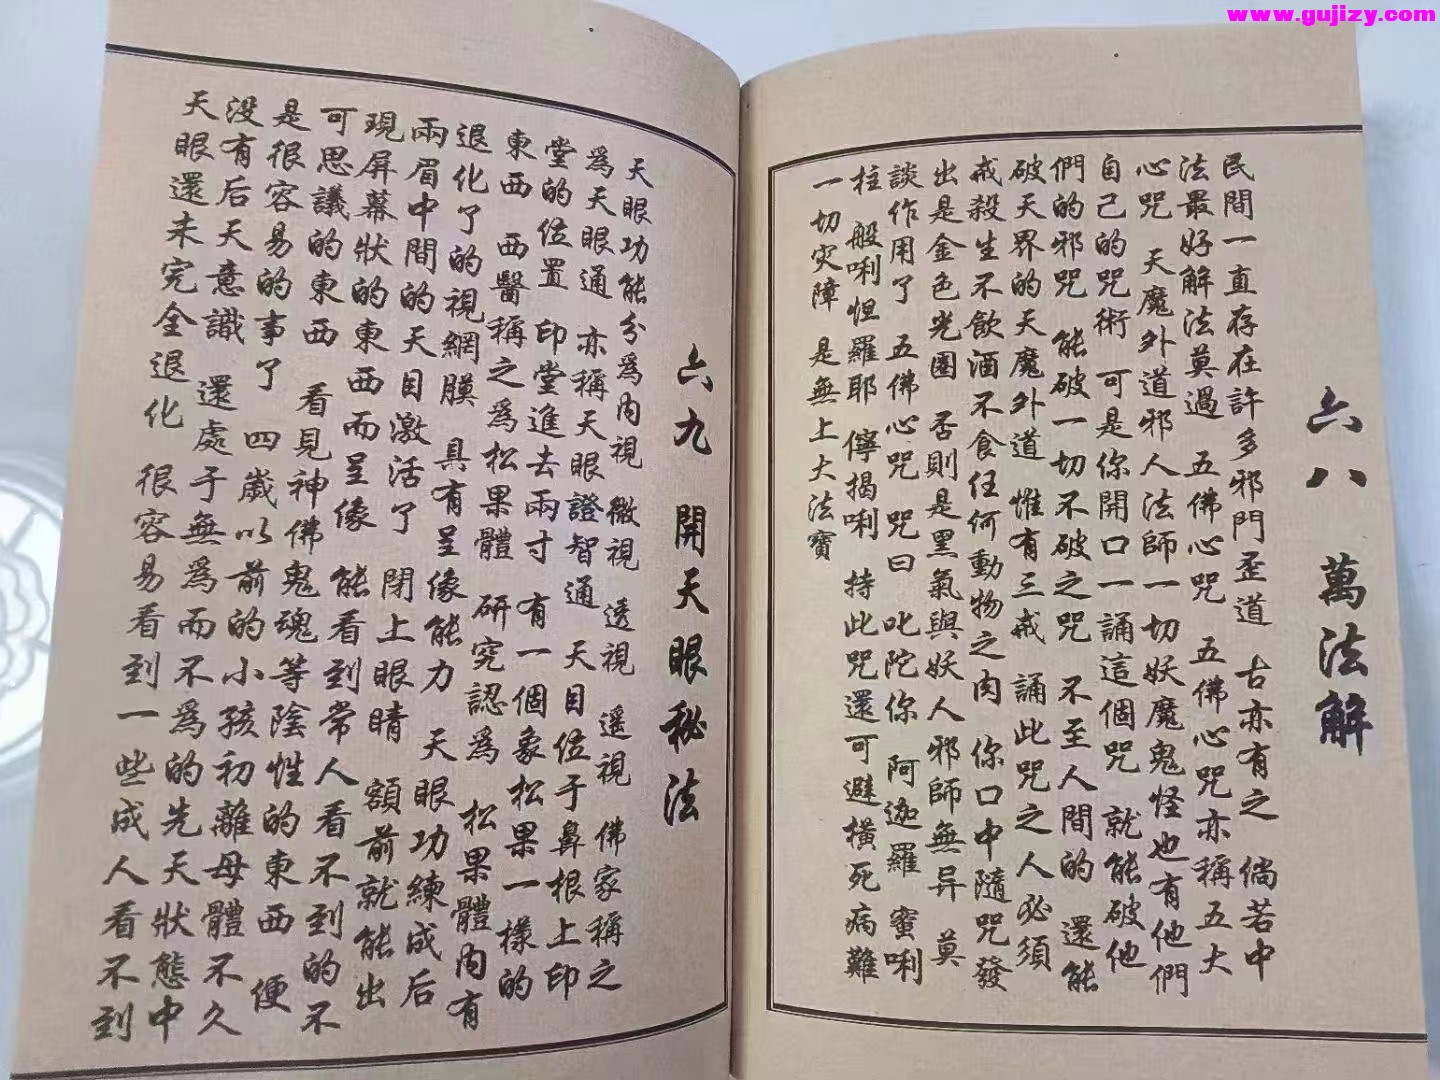 www.gujizy.com
六八 萬法解
民間一直存在許多邪門歪道 古亦有之 倘若中
法最好解法莫過 五佛心咒 五佛心咒亦稱五大
心咒 天魔外道邪人法師一切妖魔鬼怪也有他們
自己的咒術 可是你開口一誦這個咒 就能破他
們的邪咒 能破一切不破之咒 不至人間的 還能
破天界的天魔外道 惟有三戒 誦此咒之人必須
戒殺生不飲酒不食任何動物之肉 你口中隨咒發
出是金色光圈 否則是黑氣與妖人邪師無异 莫
談作用了 五佛心咒 咒曰 叱陀你 阿迦羅 蜜唎
柱 般唎怛羅耶 儜揭唎 持此咒還可避橫死病難
一切灾障 是無上大法寶
六九 開天眼秘法
天眼功能分爲内視 微視 透視 遥視 佛家稱之
爲天眼通 亦稱天眼證智通 天目位于鼻根上印
堂的位置 印堂進去兩寸 有一個象松果一樣的
東西 西醫稱之爲松果體 研究認爲 松果體内有
退化了的視網膜 具有呈像能力 天眼功練成后
兩眉中間的天目激活了 閉上眼睛 額前就能出
現屏幕狀的東西而呈像 能看到常人看不到的不
可思議的東西 看見神佛鬼魂等陰性的東西 便
是很容易的事了 四歲以前的小孩初離母體不久
没有后天意識 還處于無爲而不爲的先天狀態中
天眼還未完全退化 很容易看到一些成人看不到